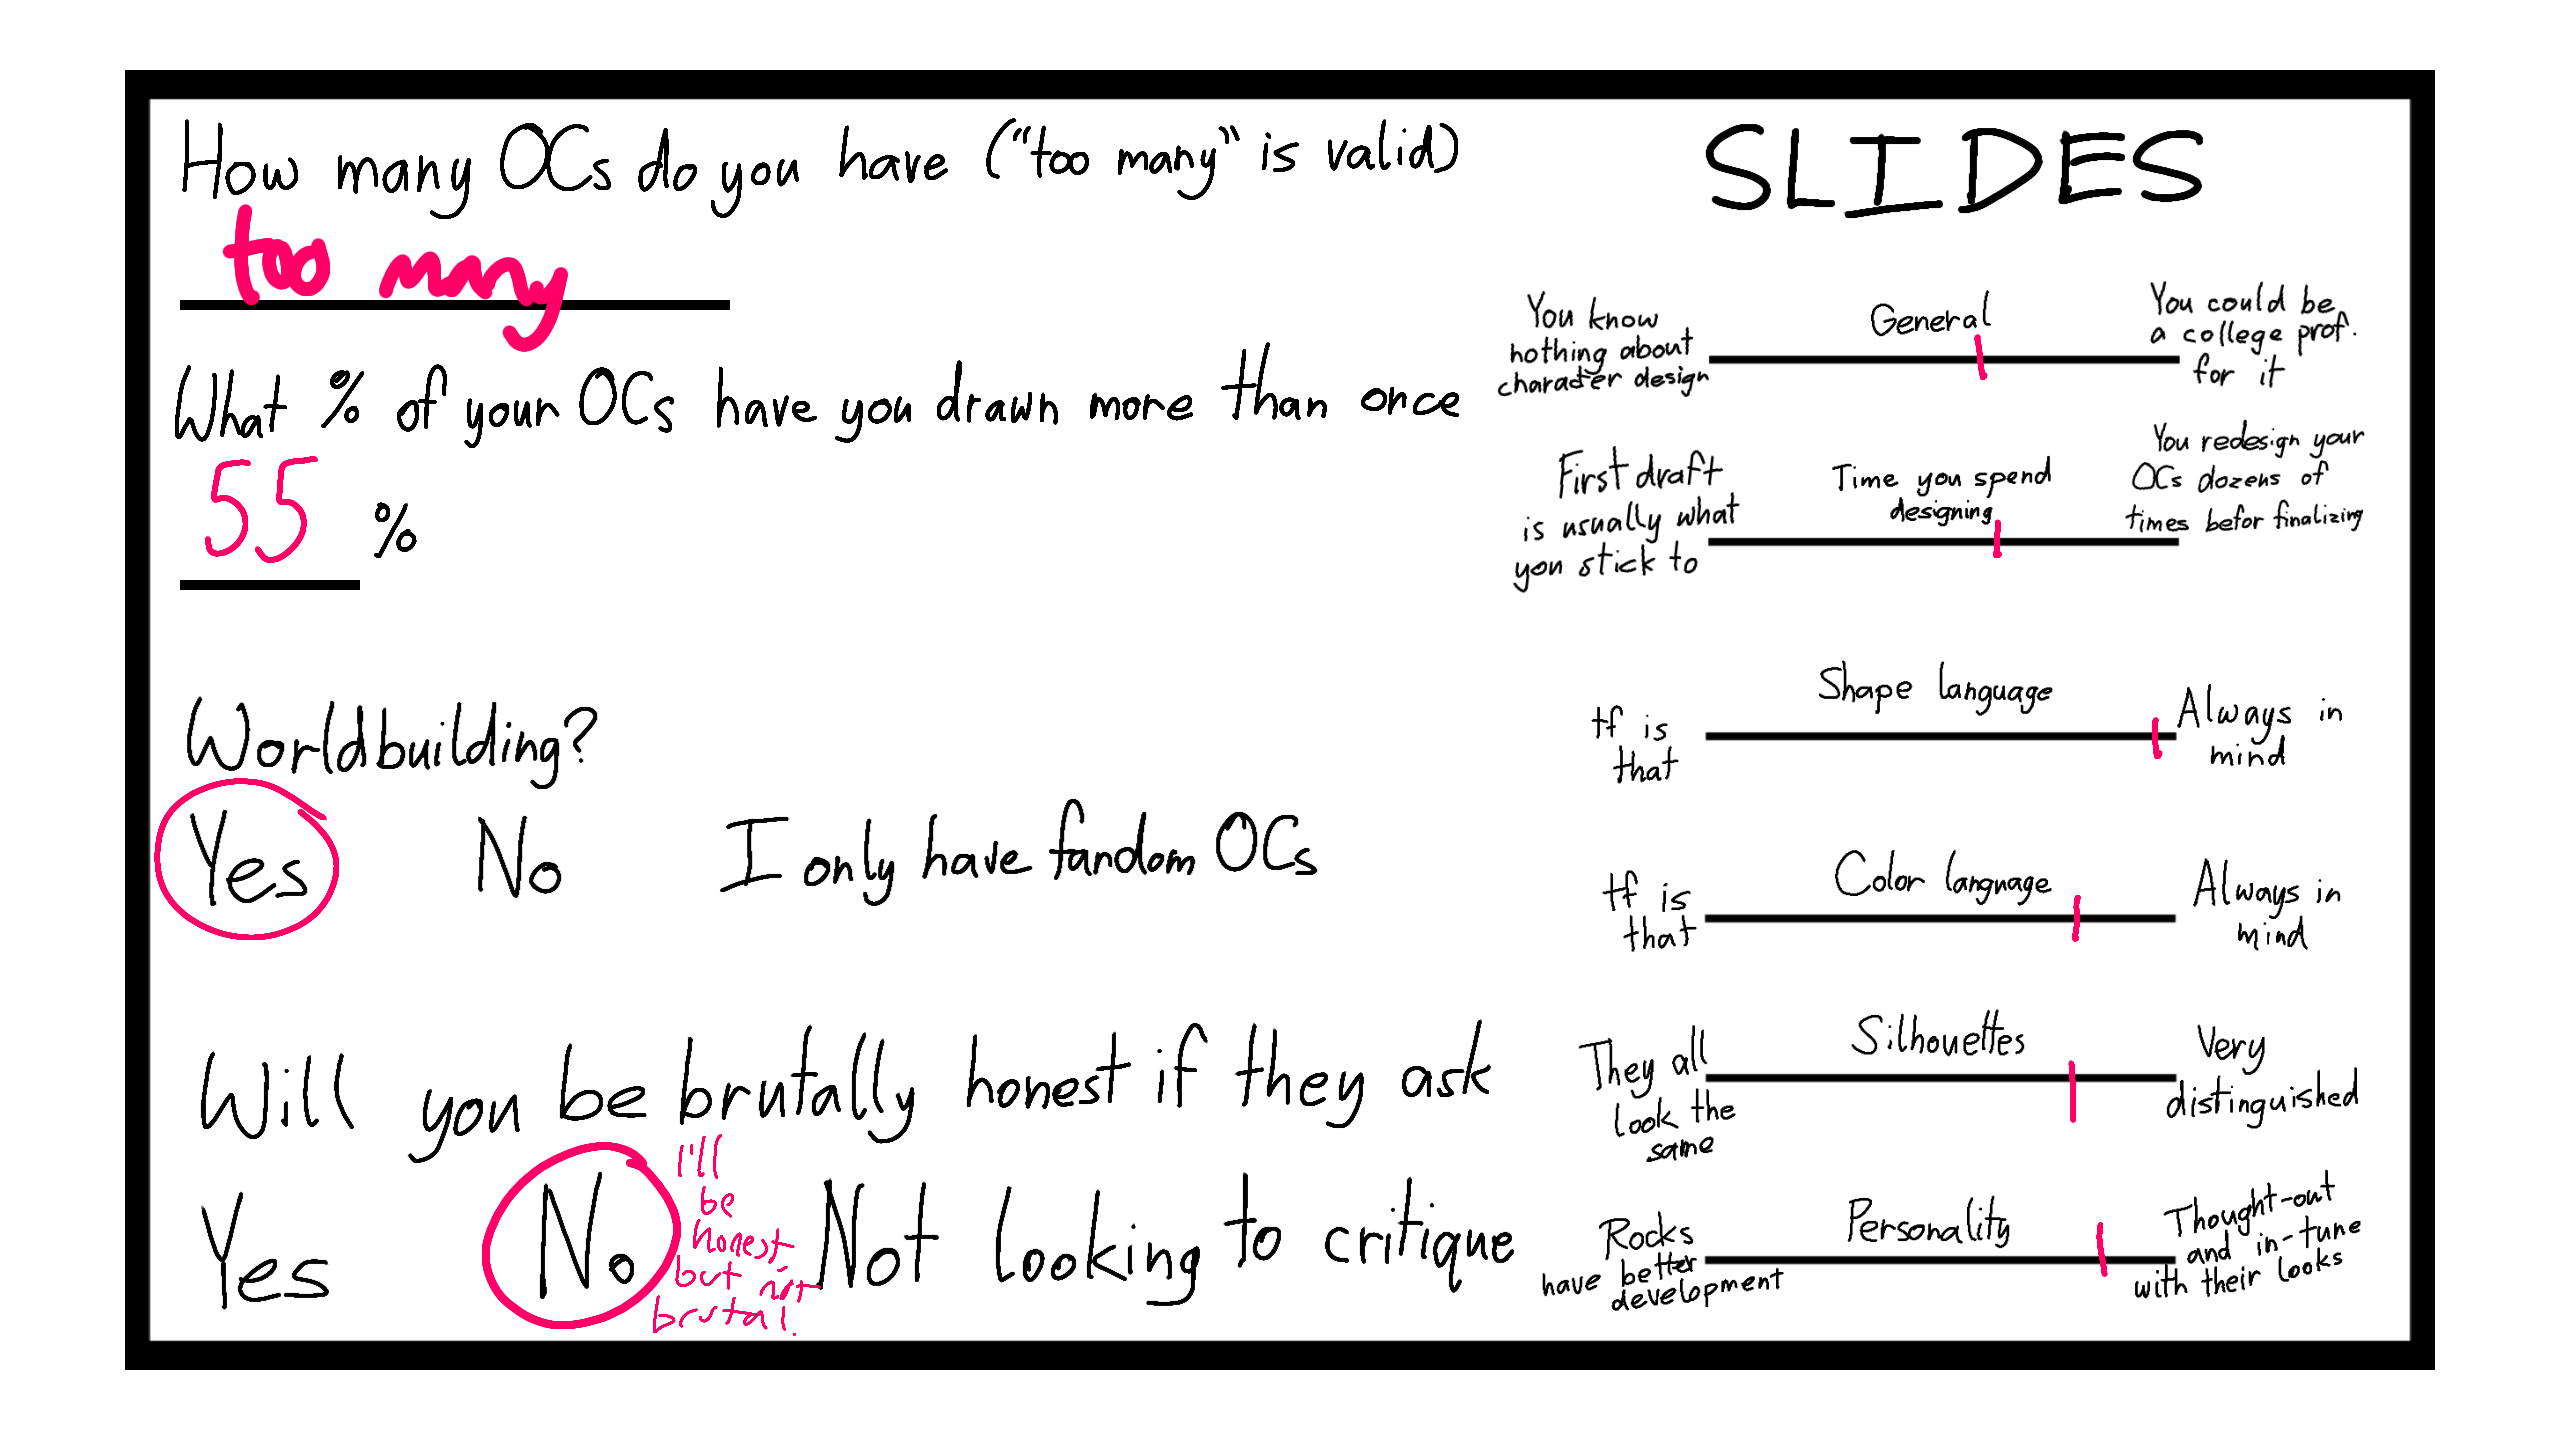 How many OCs do you have ("too many" is valid)
too many
What % of your OCs have you drawn more than once
55 %
Worldbuilding?
Yes No I only have fandom OCs
Will you be brutally honest if they ask
Yes No Not looking to critique
I'll
be
honest
but not
brutal.
SLIDES
General
You know
nothing about
character design
You could be
a college prof.
for it
Time you spend
designing
First draft
is usually what
you stick to
You redesign your
OCs dozens of
times befor finalizing
Shape language
tf is
that
Always in
mind
Color language
tf is
that
Always in
mind
Silhouettes
They all
look the
same
Very
distinguished
Personality
Rocks
have better
development
Thought-out
and in-tune
with their looks